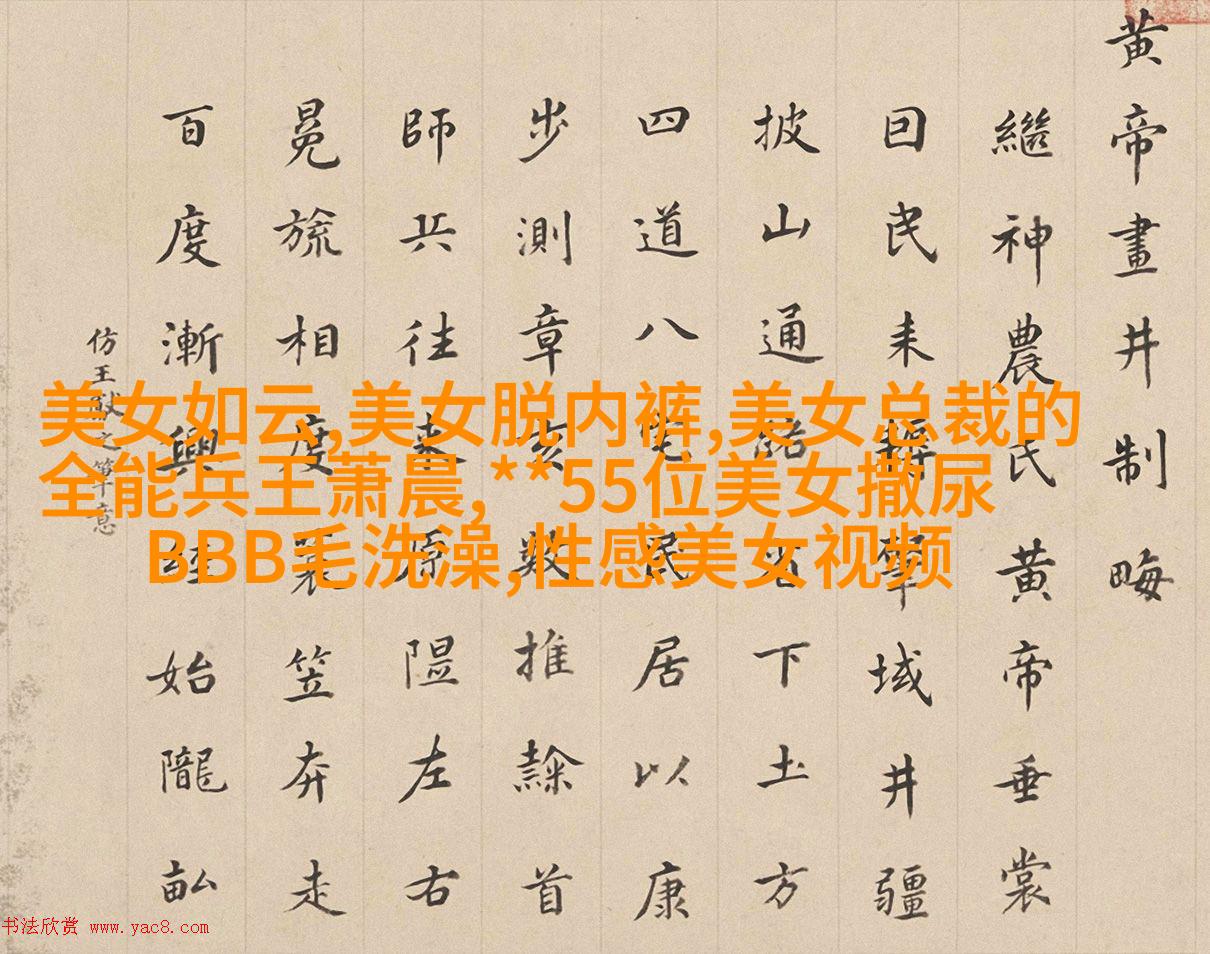 黃帝畫井制畮
繼神農氏黃帝垂裳
囙民耒耨域井疆
披山通路下土方
四道八宅民居以康
步測章亥數推隸首
師兵往來原隰左右
冕旒相度蓑笠奔走
百度漸興經始隴畝
仿王献之筆意
美女如云,美女脱内裤,美女总裁的
全能兵王萧晨,**55位美女撒尿
BBB毛洗澡,性感美女视频
书法欣赏 www.yac8.com